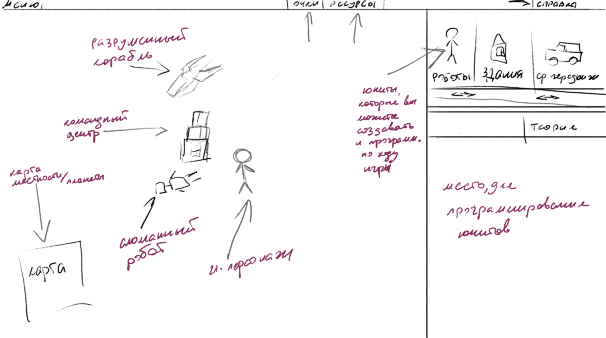 меню
очки
ресурсы
справка
разрушенный
корабль
командный
центр
карта
местности/планеты
карта
сломанный
робот
гл. персонаж
юниты,
которые вы
можете
создавать
и программ.
по ходу
игры
роботы
здания
ср передвиж
Теория
место, для
программирование
юнитов